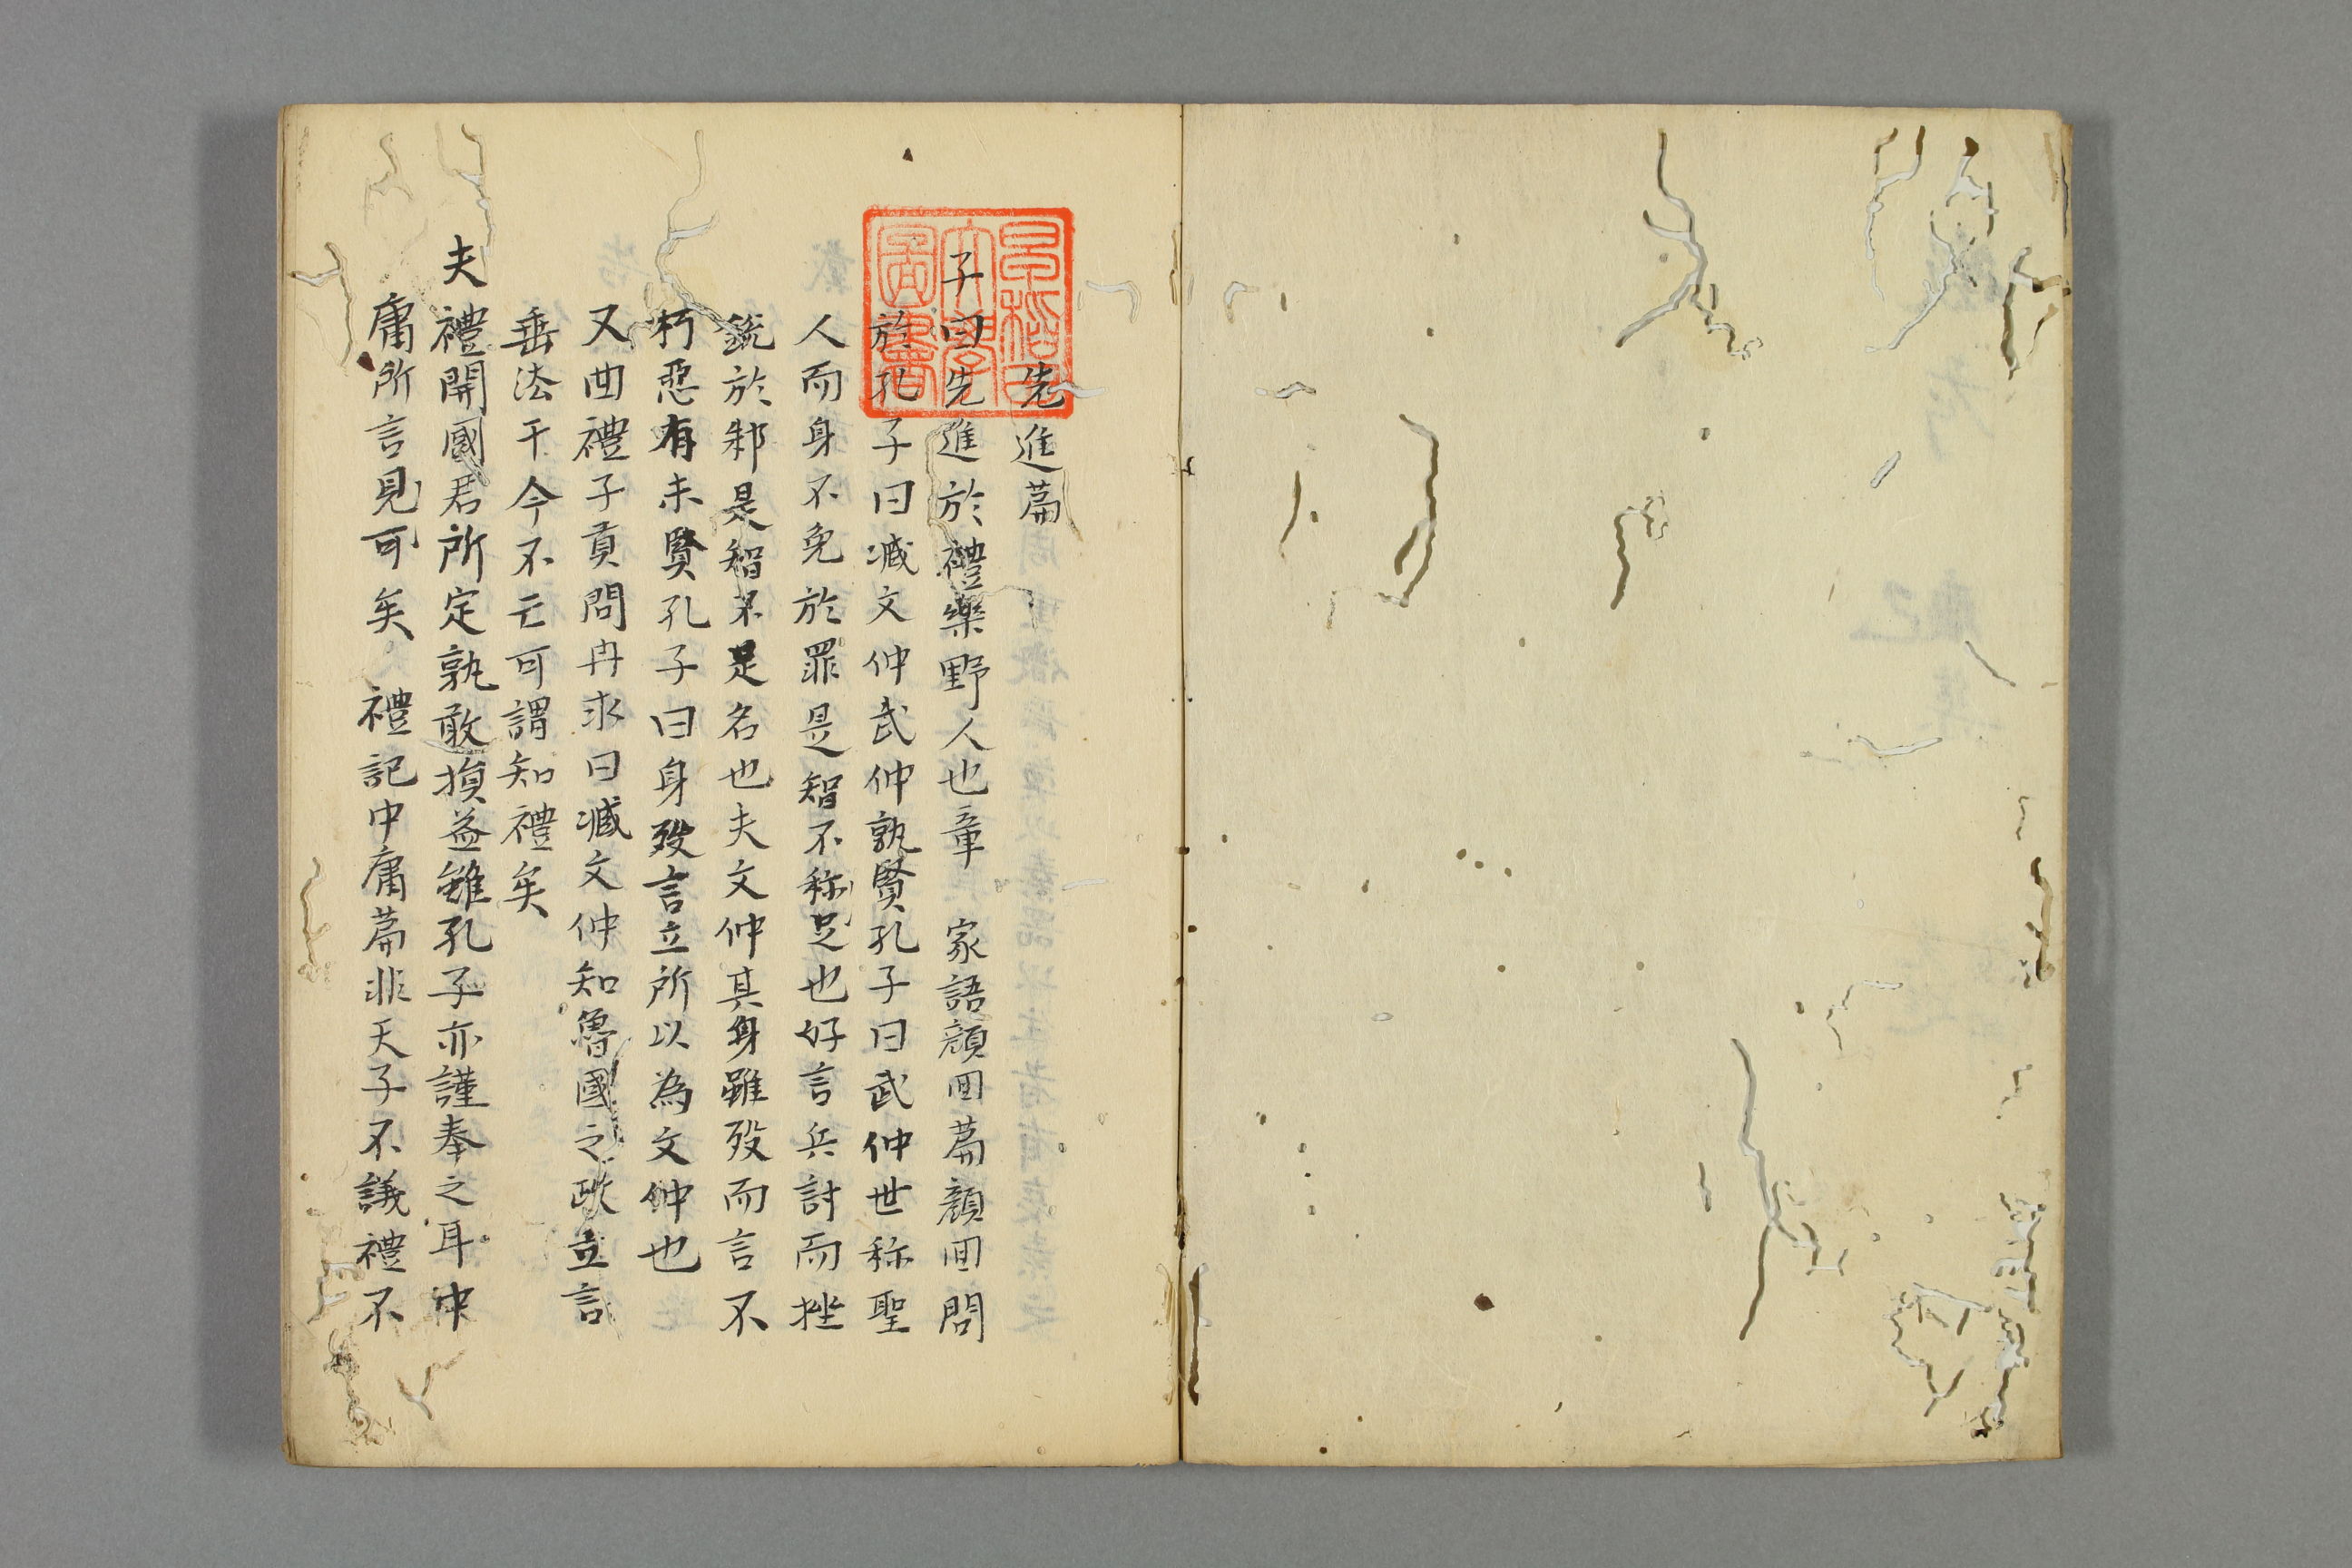 先進篇
子曰先進於禮樂野人也章 家語顔回篇顔回問
於孔子曰臧文仲武仲孰賢孔子曰武仲世称聖
人而身不免於罪是智不称足也好言兵討而挫
銳於邾是智不足名也夫文仲其身雖歿而言不
朽惡有未賢孔子曰身歿言立所以為文仲也
又曲禮子貢問冉求曰臧文仲知魯國之政立言
垂法于今不亡可謂知禮矣
夫禮開國君所定孰敢損益雖孔子亦謹奉之耳中
庸所言見可矣 禮記中庸篇非天子不議禮不
早稲田大學圖書